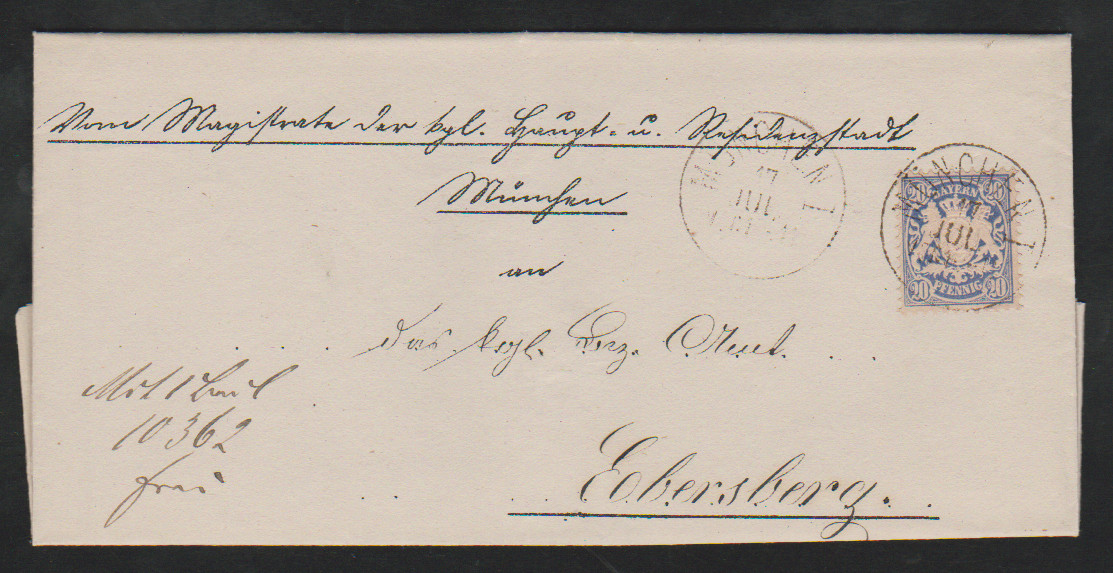 Vom Magistrate der kgl. Haupt- u. Residenzstadt
München
an
das kgl. Bez. Amt.
Ebersberg.
Mit 1 Beil
10362
frei
MÜNCHEN I
17
JUL
MÜNCHEN I
17
JUL
20 BAYERN 20
20 PFENNIG 20